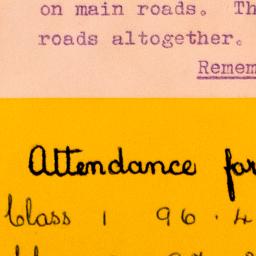 on main roads. Th
roads altogether.
Remem
Attendance for
Class 1 96.4